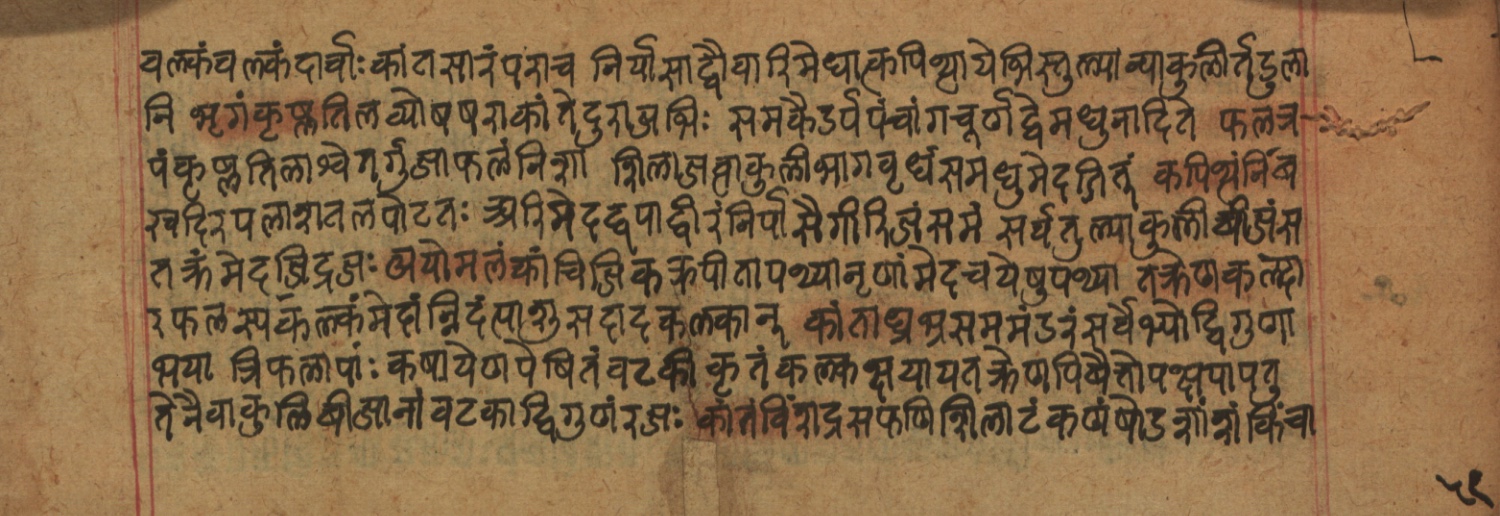 वल्कंवल्कंदार्वोः कांतसारंपराच निर्यासाद्वैयारिमेधात्कपिथ्थायेभिस्तुल्याव्याकुलीर्तंडुला
नि भृगंकृष्णतिलव्योषषराकांतेदुराजभिः समकैडर्पपंचांगचूर्णंद्वेमधुनार्दिते फलत्र
पंकृष्णतिलाश्वेतगुंजाफलंनिशा शिलाजत्वाकुलीभागवृर्धंसमधुमेदजितूं कपिथ्थंनिंब
खदिरपलाशतलपोटतः अरिमेदद्वपाद्वीरंनिर्पासैगीरिजंसमं सर्वतुल्याकुलीबीजंस
तक्रंमेदजिद्रजः अयोमलंकांचिजिकंक्रपीतापथ्थानृणांमेदचयेषुपथ्या तक्रेणकल्दा
रफलस्पकल्कंमेदांन्निदंत्पाशुसदादकल्कान् कांताभ्रभ्रसममंडरंसर्वैभ्योद्विगुणा
भया त्रिफलापांः कषायेणपेषितंवटकीकृतंकल्कक्षयायतक्रेणपिबैत्तोपक्षपापनु
तेनैवाकुलिबीजानांवटकाद्विगुणंरजः कांतंविंशद्रसफणिशिलाटंकणंषोडशांशंकिंचा
५९